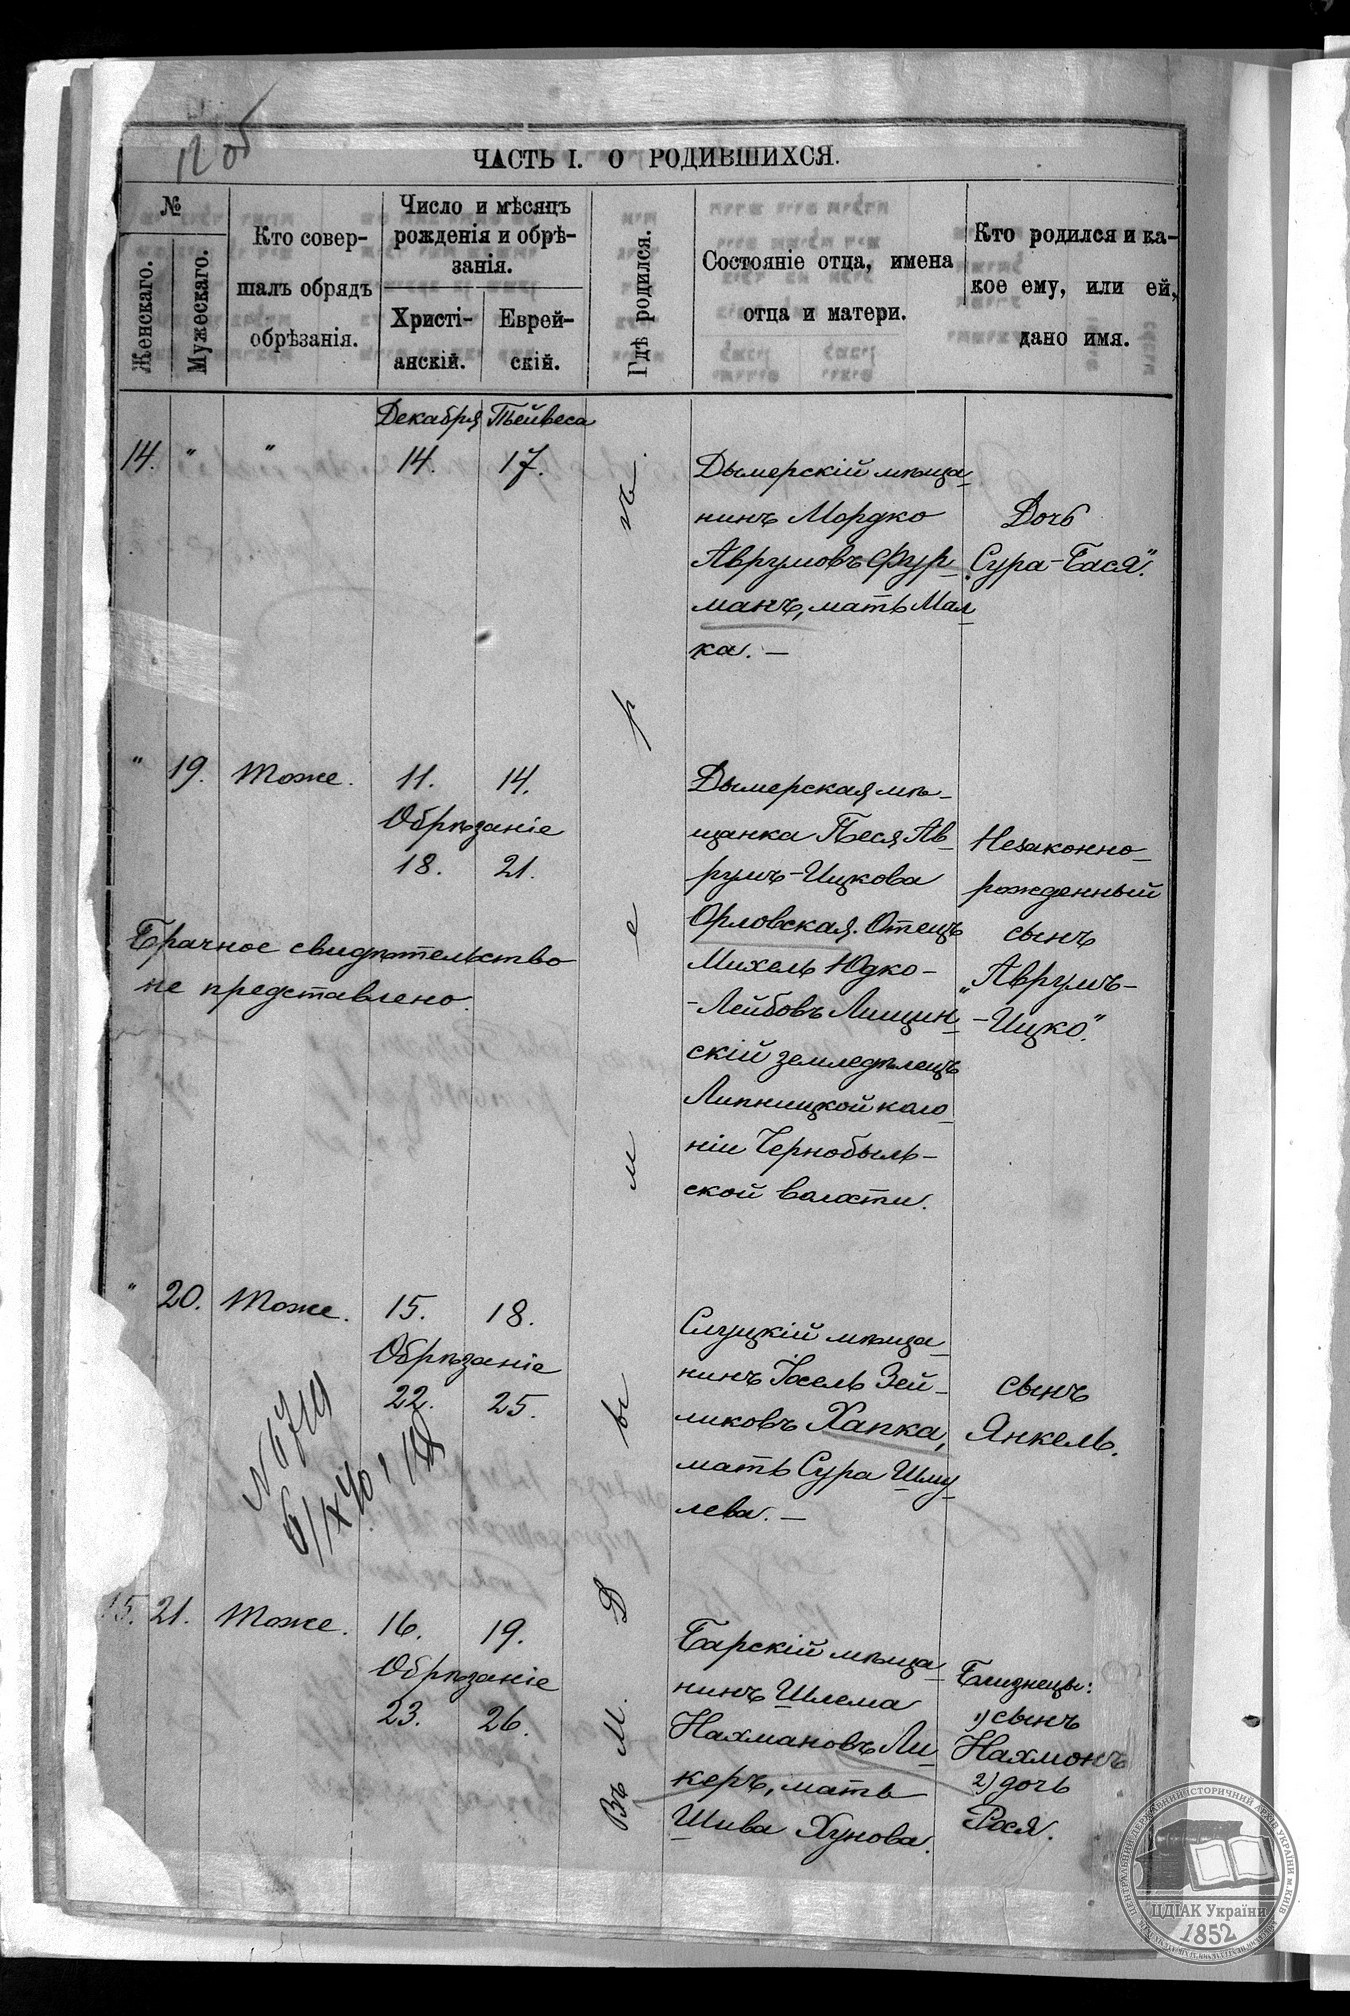 1205
ЧАСТЬ I. О РОДИВШИХСЯ.
№
Женскаго.
Мужескаго.
Кто совер-
шалъ обрядъ
обрѣзанія.
Число и мѣсяцъ
рожденія и обрѣ-
занія.
Христі-
анскій.
Еврей-
скій.
Гдѣ родился.
Состояніе отца, имена
отца и матери.
Кто родился и ка-
кое ему, или ей,
дано имя.
Декабря Тейвеса
14. " " 14. 17.
Дымерскій мѣща-
нинъ Мордко
Аврумовъ Фур-
манъ, мать Мал-
ка. —
Дочь
„Сура-Бася".
" 19. Тоже. 11. 14.
Обрѣзаніе
18. 21.
Брачное свидѣтельство
не представлено.
Дымерская мѣ-
щанка Песя Ав-
румъ-Ицкова
Орловская. Отецъ
Михель Юдко-
-Лейбовъ Лищин-
скій земледѣлецъ
Липницкой коло-
ніи Чернобыль-
ской волости.
Незаконно-
рожденный
сынъ
„Аврумъ-
-Ицко".
" 20. Тоже. 15. 18.
Обрѣзаніе
22. 25.
Слуцкій мѣща-
нинъ Іосель Зей-
ликовъ Хапка,
мать Сура Шму-
лева. —
сынъ
Янкель.
15. 21. Тоже. 16. 19.
Обрѣзаніе
23. 26.
Барскій мѣща-
нинъ Шлема
Нахмановъ Ли-
керъ, мать
Шива Хунова.
Близнецы:
1) сынъ
Нахмонъ
2) дочь
Рося.
Въ М. Дымеръ.
ЦЕНТРАЛЬНИЙ ДЕРЖАВНИЙ ІСТОРИЧНИЙ АРХІВ УКРАЇНИ М.КИЇВ
ЦДІАК України
1852